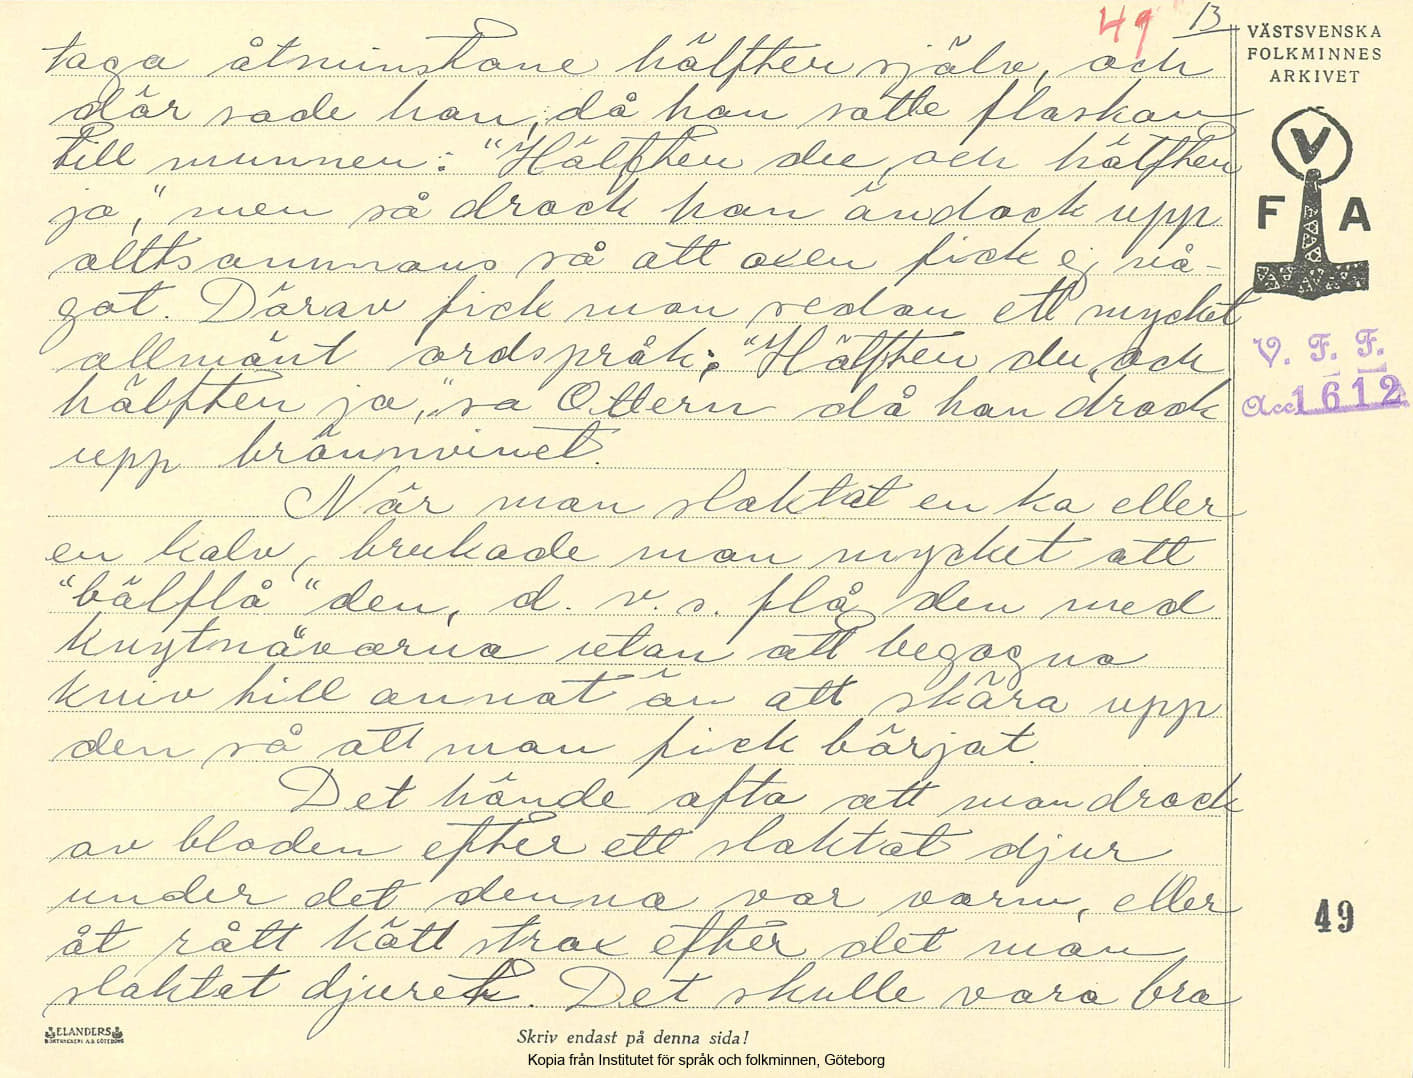 49 13
VÄSTSVENSKA
FOLKMINNES
ARKIVET
V
F A
V. F. F.
Acc 1612
taga åtminstone hälften själv, och
där sade han, då han satte flaskan
till munnen: "Hälften du och hälften
ja," men så drack han ändock upp
alltsammans så att oxen fick ej nå-
got. Därav fick man sedan ett mycket
allmänt ordspråk: "Hälften du, och
hälften ja," sa Ottern då han drack
upp brännvinet.
När man slaktat en ko eller
en kalv, brukade man mycket att
"bälflå" den, d. v. s. flå den med
knytnävarna utan att begagna
kniv till annat än att skära upp
den så att man fick börjat.
Det hände ofta att man drack
av bloden efter ett slaktat djur
under det denna var varm, eller
åt rått kött strax efter det man
slaktat djuret. Det skulle vara bra
49
ELANDERS
BOKTRYCKERI A.B. GÖTEBORG
Skriv endast på denna sida!
Kopia från Institutet för språk och folkminnen, Göteborg